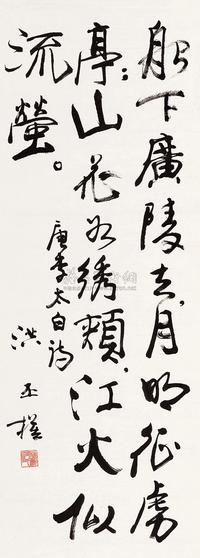 船下廣陵去，月明征虜
亭；山花如绣頰，江火似
流螢。
唐李太白诗
洪丕謨